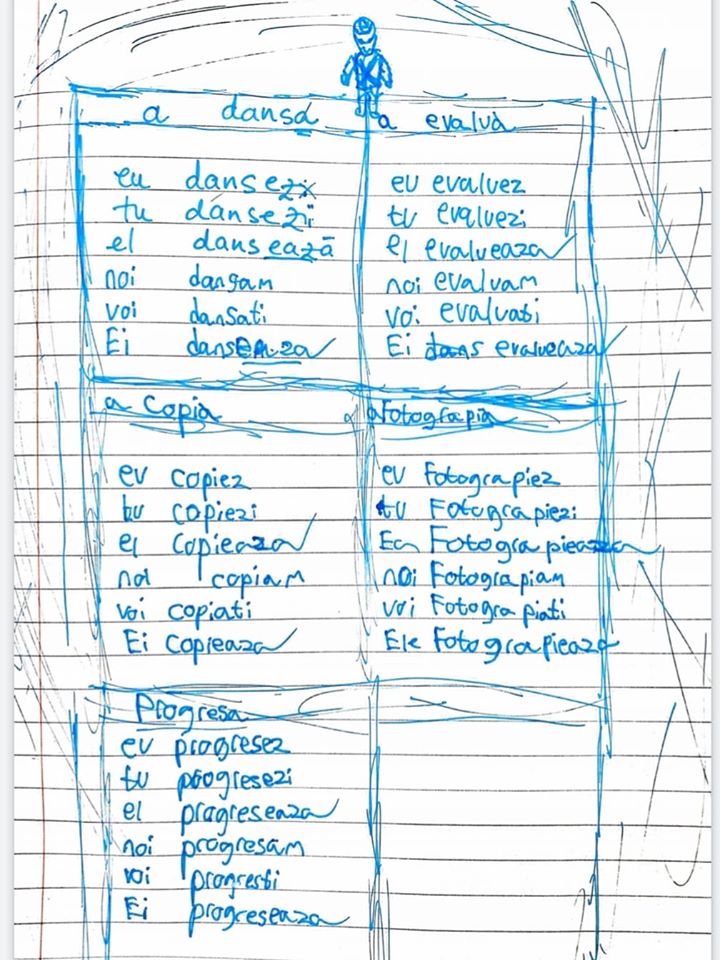 a dansa
eu dansez
tu dansezi
el dansează
noi dansam
voi dansati
Ei danseaza
a evalua
eu evaluez
tu evaluezi
el evalueaza
noi evaluam
voi evaluati
Ei dans evalueaza
a Copia
eu copiez
tu copiezi
el copieaza
noi copiam
voi copiati
Ei copieaza
a Fotograpia
eu Fotograpiez
tu Fotograpiezi
Ea Fotograpieaza
noi Fotograpiam
voi Fotograpiati
Ele Fotograpieaza
Progresa
eu progresez
tu progresezi
el progreseaza
noi progresam
voi
Ei progreseaza